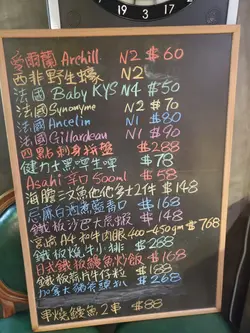 19 3 17
愛爾蘭 Archill N2 $60
西非野生蠔 N2
法國 Baby KYS N4 $50
法國 Synonyme N2 $70
法國 Ancelin N1 $80
法國 Gillardeau N1 $90
四點刺身拼盤 $288
健力士黑啤生啤 $78
Asahi 辛口 500ml $58
海膽三文魚他他多士2件 $148
白酒煮藍青口 $168
鐵板沙巴大虎蝦 $148
宮崎A4和牛肉眼 400-450gm $768
鐵板燒牛小排 $268
日式鐵板鰻魚炒飯 $168
鐵板 牛仔粒 $188
加拿大 $268
串燒鰻魚 2串 $88